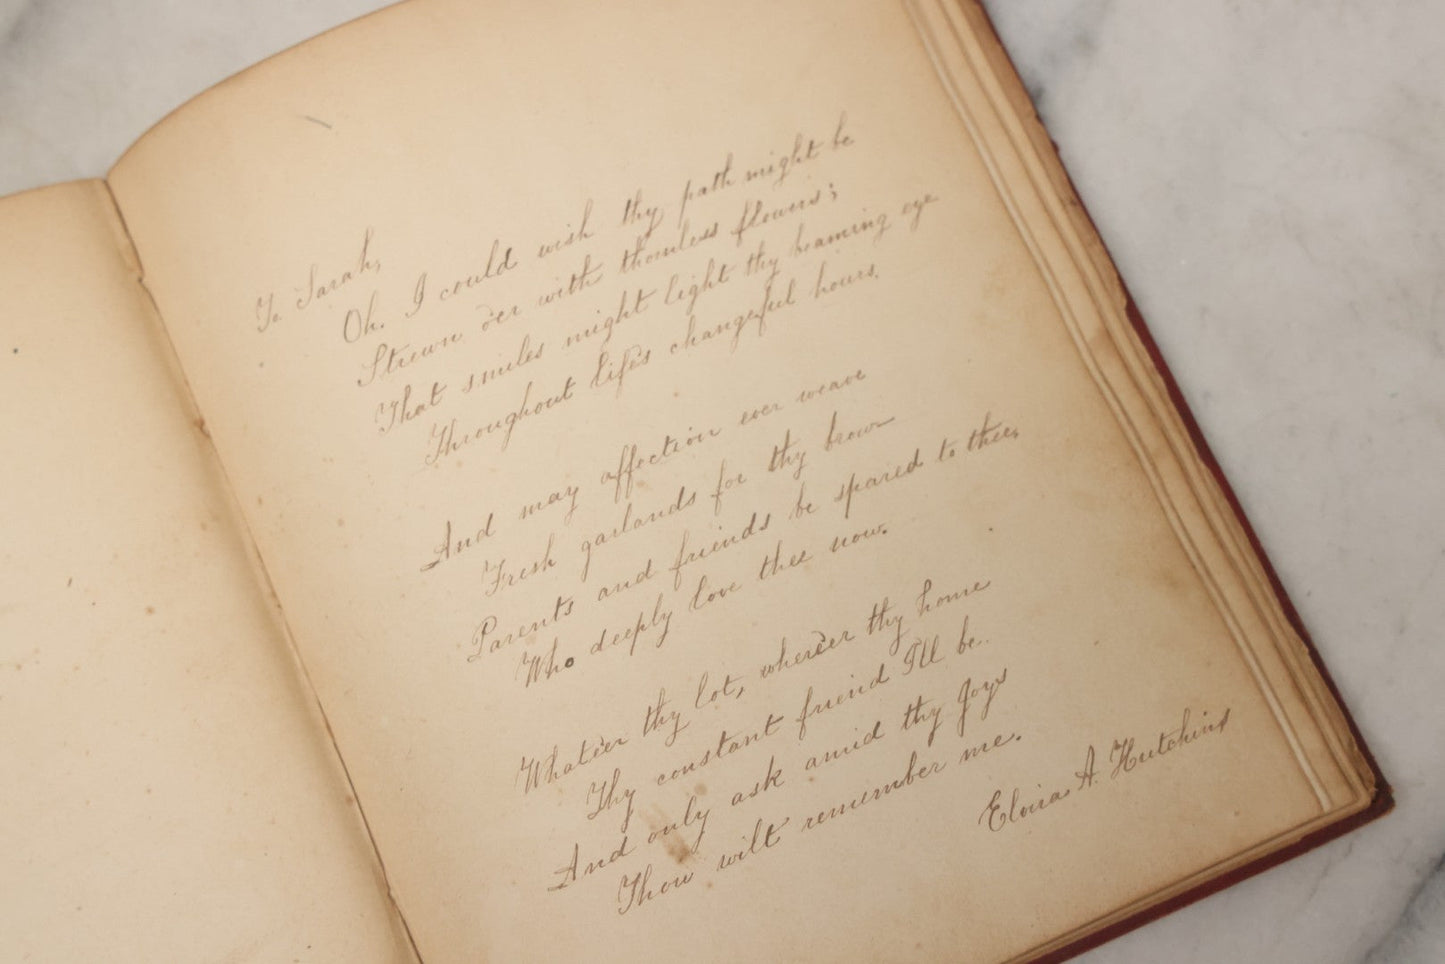 To Sarah,
Oh. I could wish thy path might be
Strewn o'er with thornless flowers;
That smiles might light thy beaming eye
Throughout life's changeful hours.
And may affection ever weave
Fresh garlands for thy brow
Parents and friends be spared to thee,
Who deeply love thee now.
Whate'er thy lot, where'er thy home
Thy constant friend I'll be.
And only ask amid thy joys
Thou wilt remember me.
Eloisa A. Hutchins